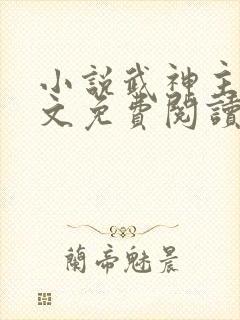 小說武神主
文免費閱讀
蘭帝魅晨